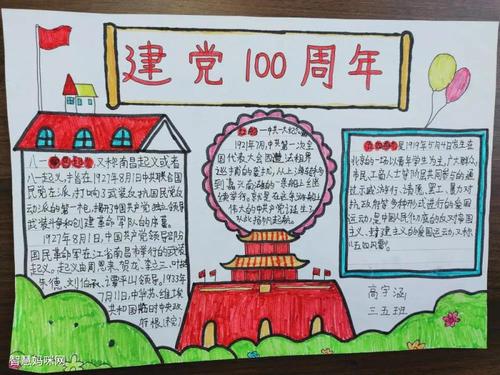 建党100周年
八一南昌起义 又称南昌起义或者
八一起义,中共联合国
民党左派,打响了武装反抗国民党反
动派的第一枪,揭开了中国共产党独立领导
武装斗争和创建革命军队的序幕。
1927年8月1日,中国共产党领导部分
国民革命军在江西省南昌市举行的武装
起义。起义由周恩来、贺龙、李立三、叶挺
朱德、刘伯承、谭平山领导。1933年
7月11日,中华苏维埃
共和国临时中央政
府根
红船 中共一大纪
1921年7月,中共第一次全
国代表大会因
嘉兴南湖的一条船上
继续举行。
伟大的中国共产党诞生
从此扬帆起航。
五四运动是1919年5月4日发生在
北京的一场以青年学生为主,广大群众,
市民、工商人士等阶层共同参与的通
过示威游行、请愿、罢工、暴力对
抗政府等多种形式进行的爱国
运动,是中国人民彻底的反对帝国
主义、封建主义的爱国运动,又称
“五四风雷”。
高宇涵
三五班
智慧妈咪网